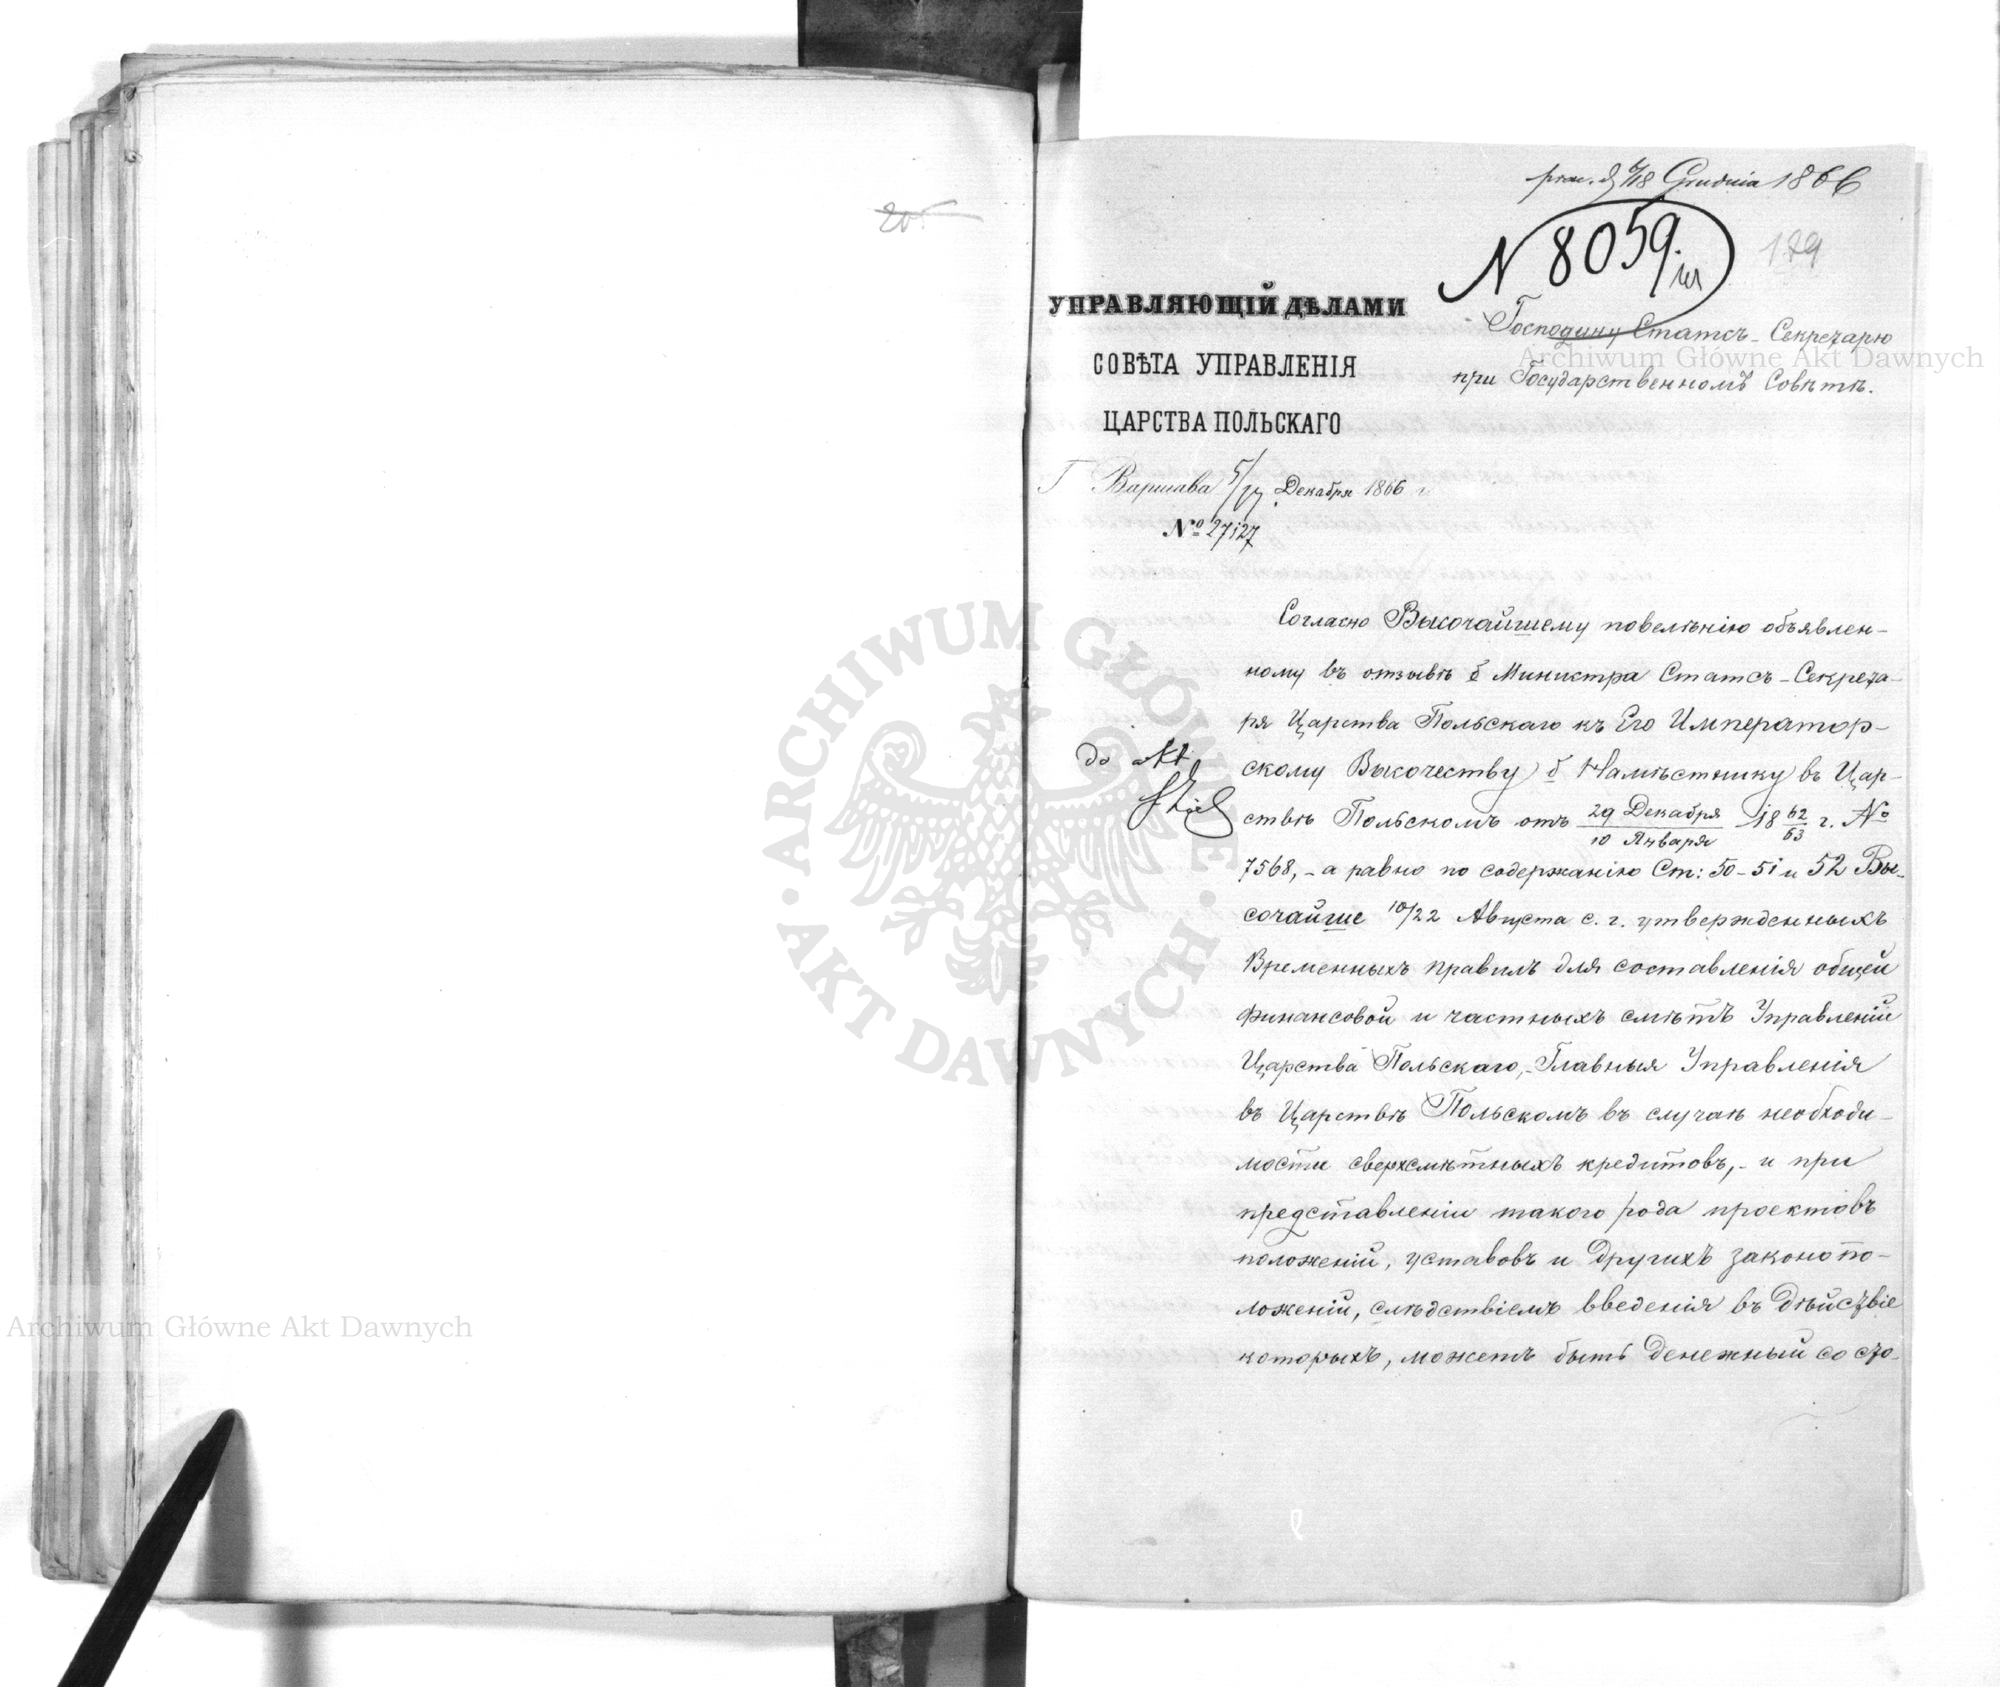 20.
6/18 Grudnia 1866
N 8059
УПРАВЛЯЮЩІЙ ДѢЛАМИ
СОВѢТА УПРАВЛЕНІЯ
ЦАРСТВА ПОЛЬСКАГО
Г Варшава 5/17 Декабря 1866 г.
№ 27127
Господину Статсъ-Секретарю
при Государственномъ Совѣтѣ.
do akt
Согласно Высочайшему повелѣнію объявлен-
ному въ отзывѣ б Министра Статсъ-Секрета-
ря Царства Польскаго къ Его Император-
скому Высочеству б Намѣстнику въ Цар-
ствѣ Польскомъ отъ 29 Декабря/10 Января 18 62/63 г. №
7568,- а равно по содержанію Ст: 50-51 и 52 Вы-
сочайше 10/22 Августа с. г. утвержденныхъ
Временныхъ правилъ для составленія общей
финансовой и частныхъ смѣтъ Управленій
Царства Польскаго,- Главныя Управленія
въ Царствѣ Польскомъ въ случаѣ необходи-
мости сверхсмѣтныхъ кредитовъ,- и при
представленіи такого рода проектовъ
положеній, уставовъ и другихъ законопо-
ложеній, слѣдствіемъ введенія въ дѣйствіе
которыхъ, можетъ быть денежный со сто-
Archiwum Główne Akt Dawnych
ARCHIWUM GŁÓWNE · AKT DAWNYCH ·
Archiwum Główne Akt Dawnych